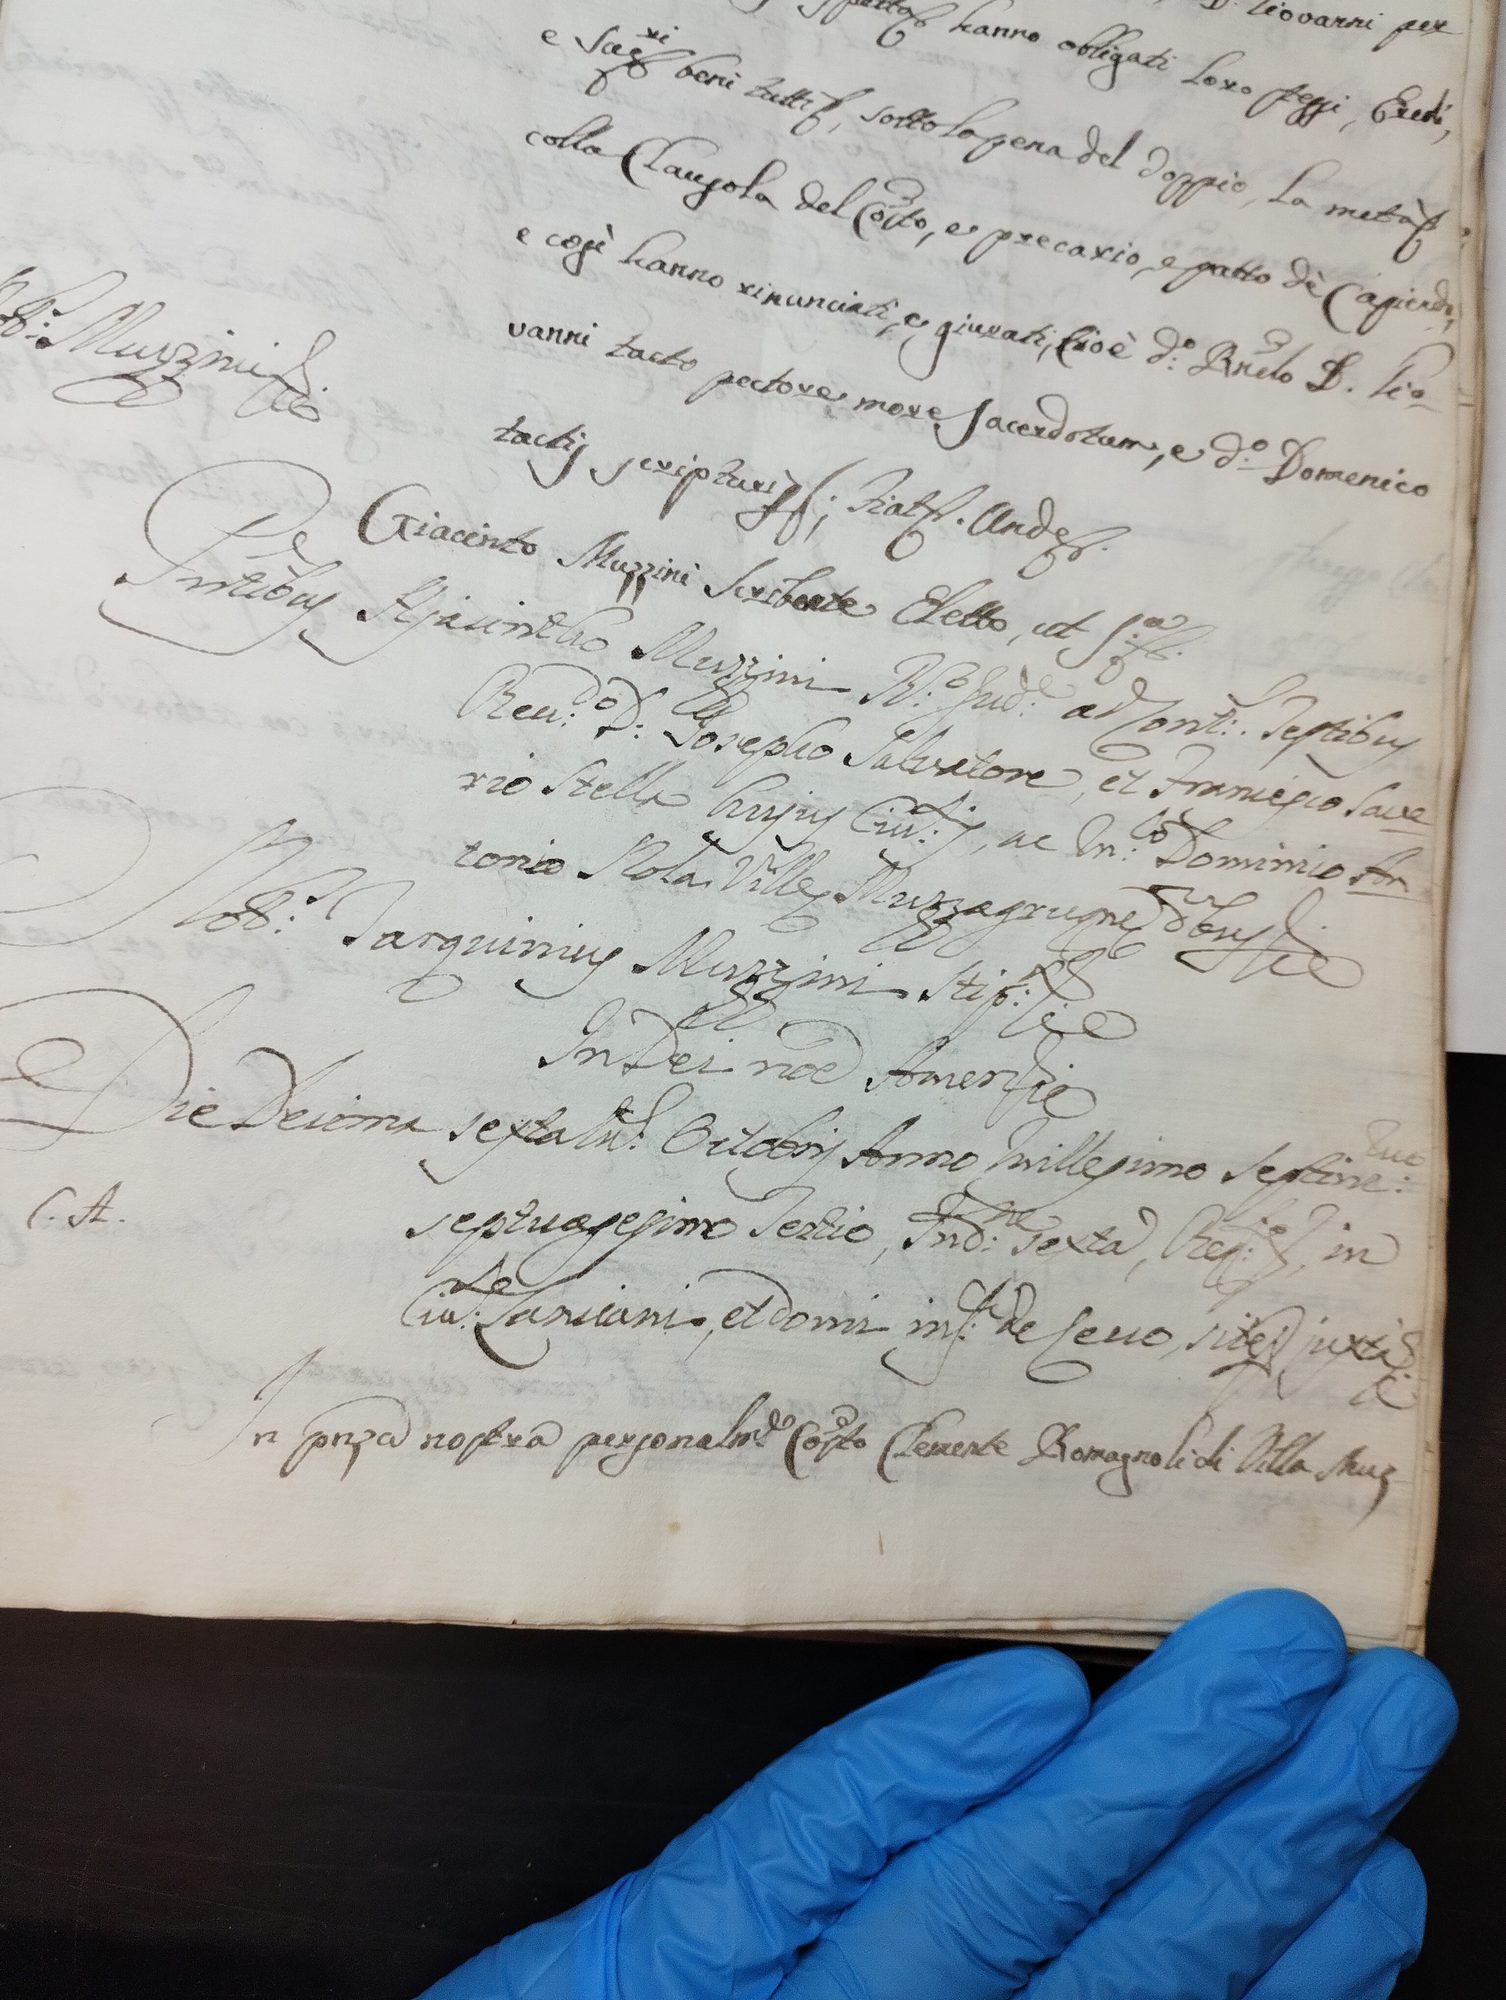 D. Giovanni per
hanno obligati loro stessi, Eredi,
e Succ.ri beni tutti, sotto la pena del doppio, la metà
colla Clausola del Cos.to, e precario, e patto de Capiendo,
e così hanno rinunciati, e giurati, Cioè d.o Rndo D. Gio=
vanni tacto pectore more Sacerdotum, e d.o Domenico
tactis scripturis; Fiat. Unde
Giacinto Muzzini Scribente Eletto, ut S.a
Muzzini
Pntibus Hjacintho Muzzini R.o Jud.e ad Cont.s Testibus
Rev.do D. Josepho Salvatore, et Francisco Save=
rio Stella hujus Civ.tis, ac In.co Dominico An=
tonio Nola Villæ Muzzagrugne
Not.s Tarquinius Muzzini Stip.s
In Dei nõe Amen
Die Decima sexta Octobris Anno Millesimo Septine:
septuagesimo Tertio, Ind.ne sexta, Reg. in
C. A.
Civ.te Lanciani, et domi de Cecco, sita juxta
In pnza nostra personalm.e Cos.to Clemente Romagnoli di Villa Muz